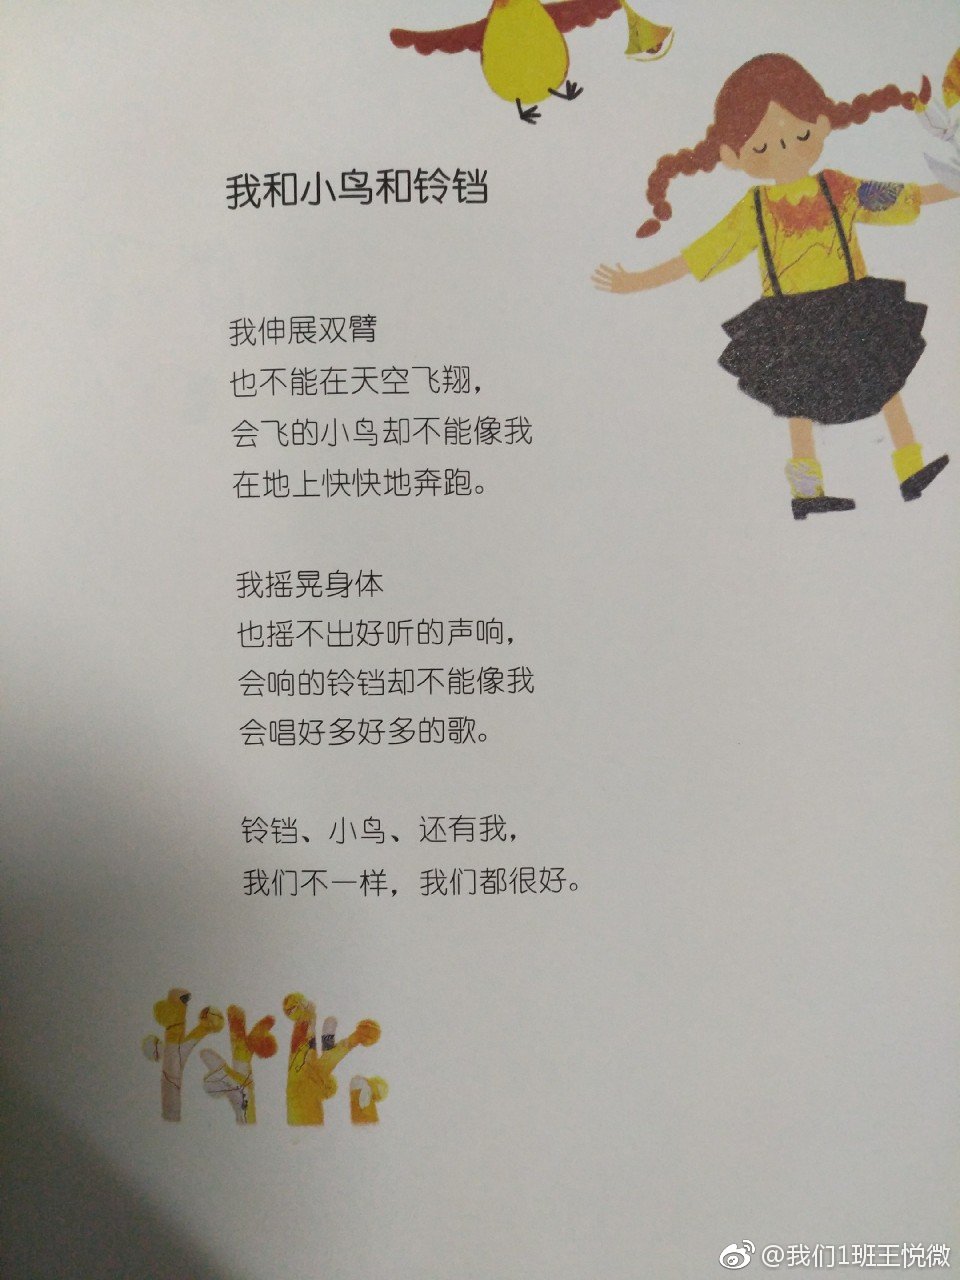 我和小鸟和铃铛
我伸展双臂
也不能在天空飞翔，
会飞的小鸟却不能像我
在地上快快地奔跑。
我摇晃身体
也摇不出好听的声响，
会响的铃铛却不能像我
会唱好多好多的歌。
铃铛、小鸟、还有我，
我们不一样，我们都很好。
@我们1班王悦微